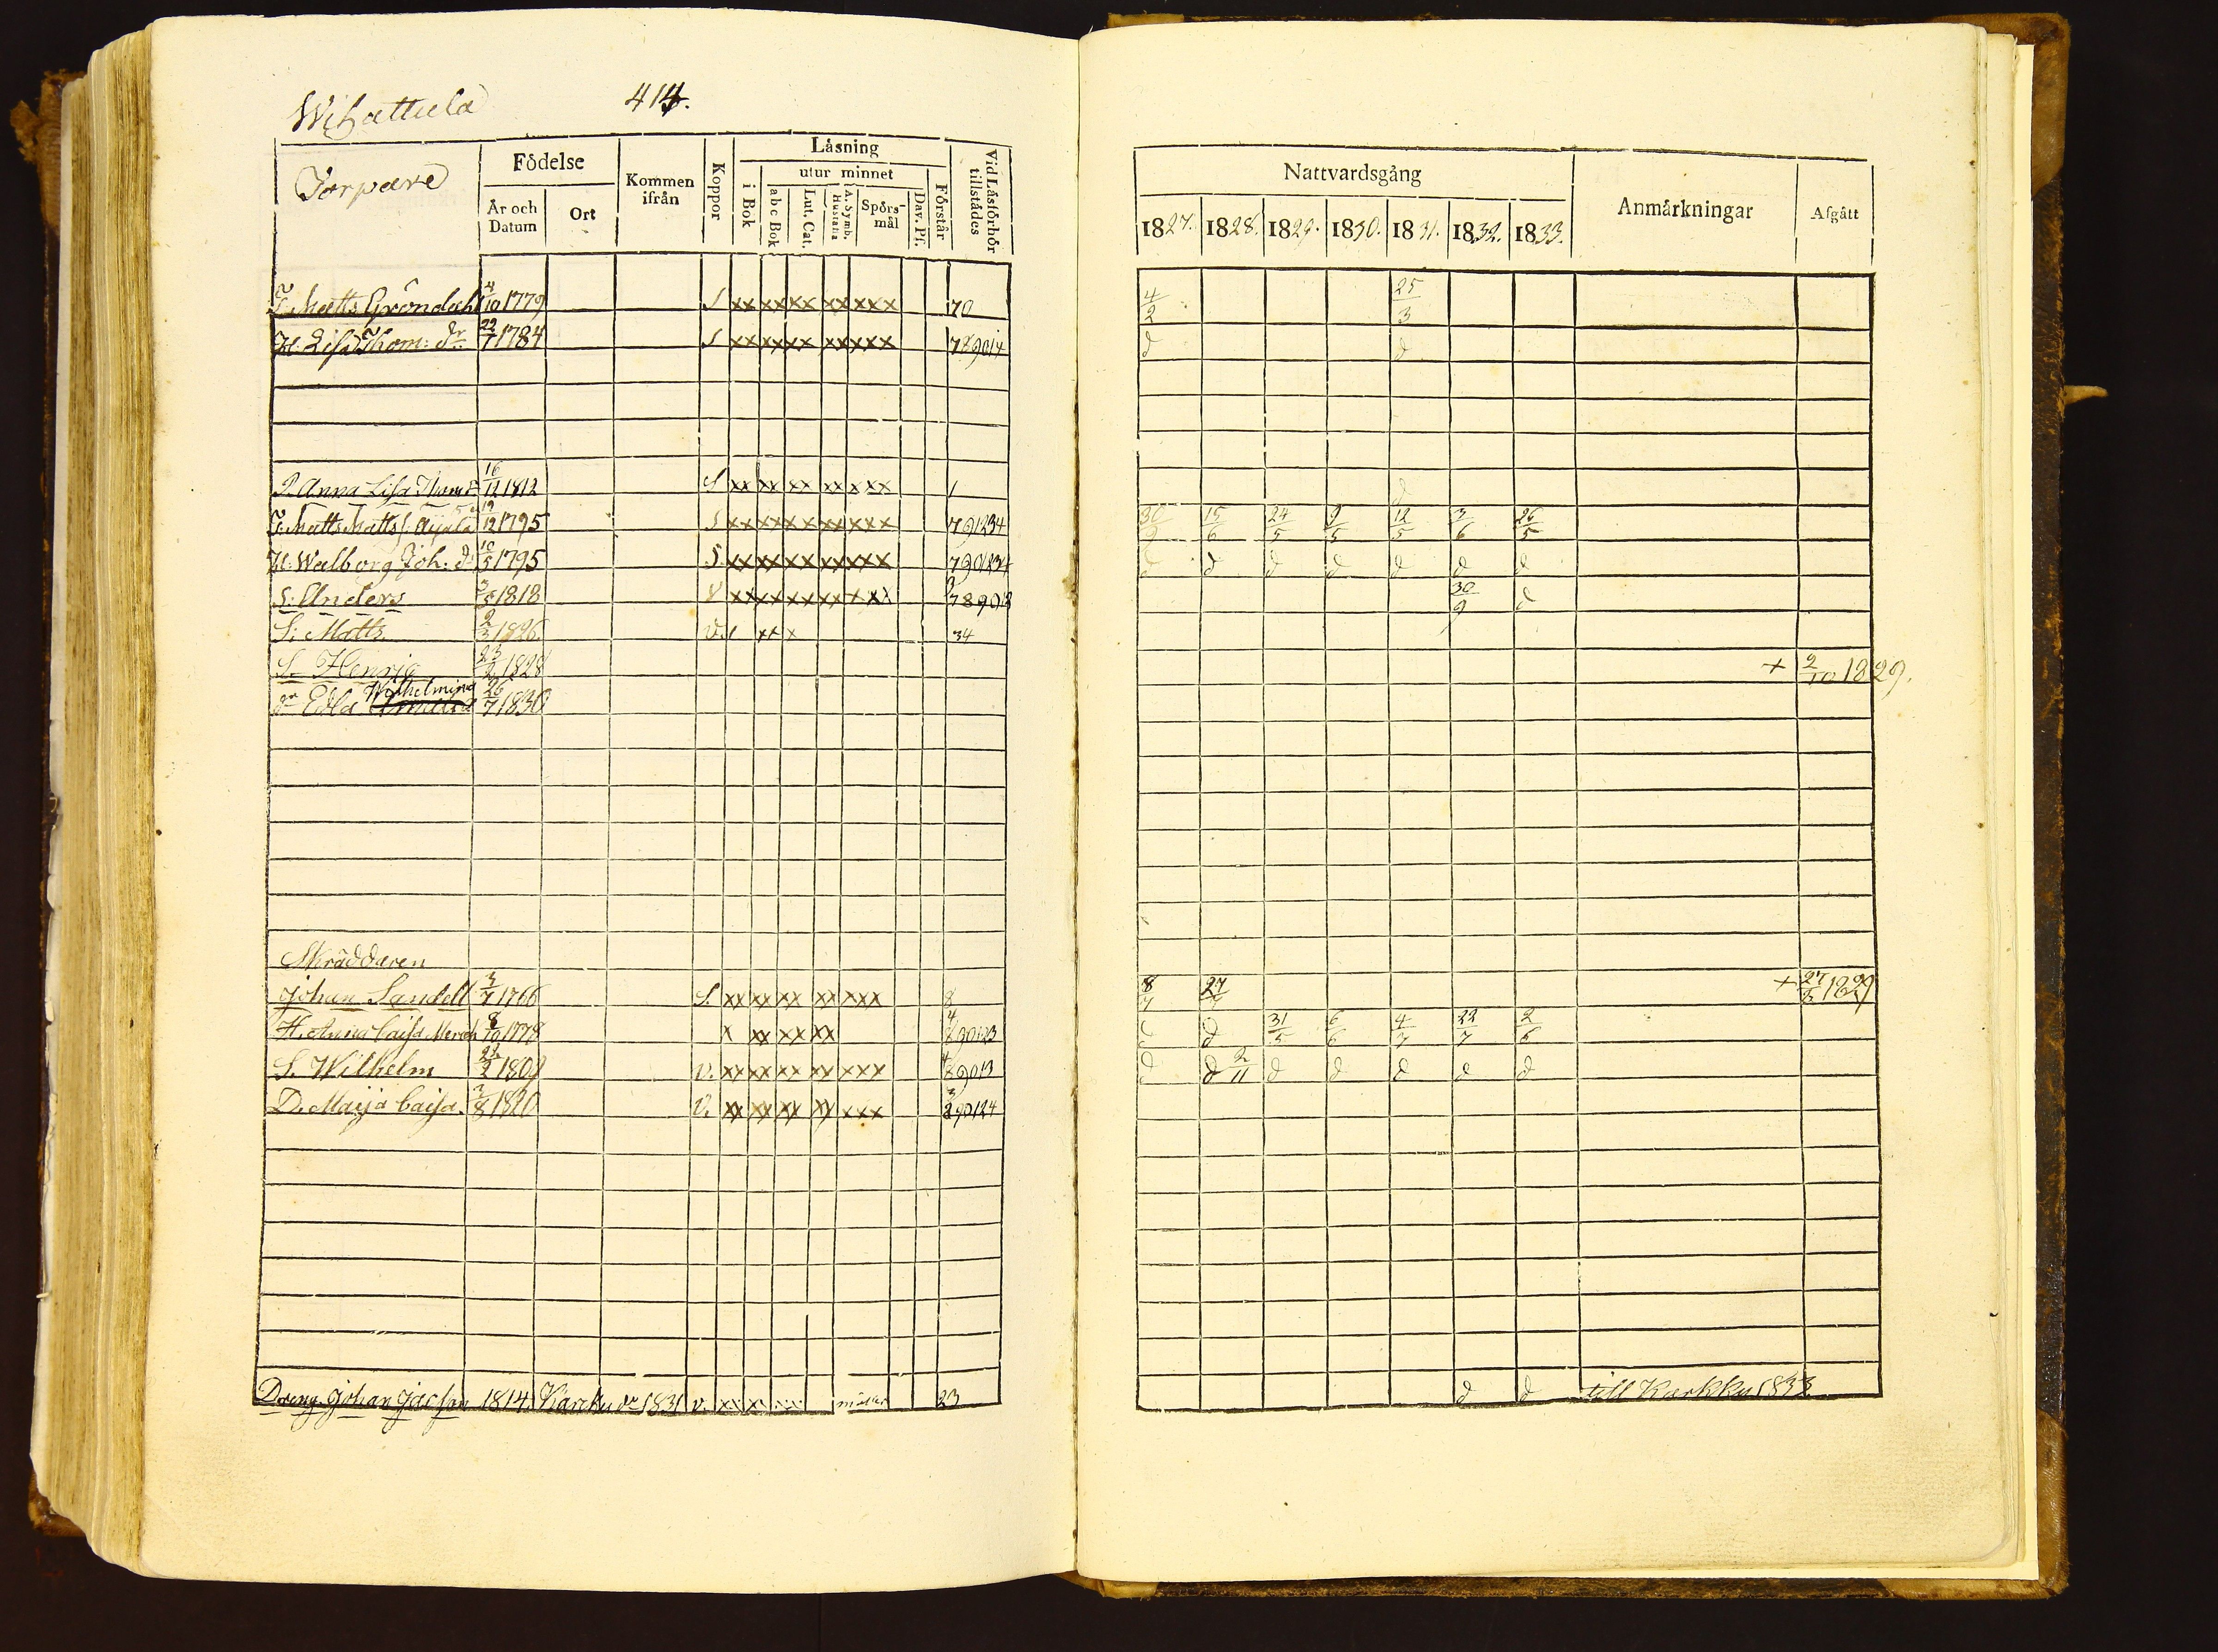 Wihattula 414.
Torpare
Födelse
År och Datum
Ort
Kommen ifrån
Koppor
Låsning
i Bok
utur minnet
abc Bok
Lut. Cat.
A. Symb. Hustafla
Spörs-mål
Dav. Ps.
Förstår
Vid Låsförhör tillstådes
T. Matts Gröndahl 4/10 1779 S xx xx xx xx xxx 70
H. Lisa Thom: dr 22/7 1784 S xx xx xx xx xxx 789014
P. Anna Lisa 16/12 1812 S xx xx xx xx xxx 1
T. Matts Matts s. Äijälä 19/12 1795 S xx xx xx xx xxx 791234
H. Walborg Joh: dr 10/5 1795 S. xx xx xx xx xxx 7901234
S: Anders 3/5 1818 V xx xx xx xx xxx
S: Matts 2/3 1826 v. xx x 34
S. Henric 23/2 1828
dr Edla Wilhelmina 26/7 1830
Skräddaren
Johan Sandell 3/7 1766 S. xx xx xx xx xxx 8
H. Anna Caisa 8/10 1778 x xx xx xx
S. Wilhelm v. xx xx xx xx xxx
D. Maija Caisa. 3/8 1820 v. xx xx xx xx xxx
Dreng Johan Jacsson 1814. 1831 v. 23
Nattvardsgång
Anmårkningar
Afgått
1827. 1828. 1829. 1830. 1831. 1832. 1833.
4/2 25/3
d d
d
30/9 15/6 24/5 9/5 12/5 3/6 26/5
d d d d d d d
30/9 d
+ 2/10 1829.
8/7 27/7 + 27/5 1829
d d 31/5 6/6 4/7 22/7 2/6
d d 2/11 d d d d d
d d till Karkku 1833